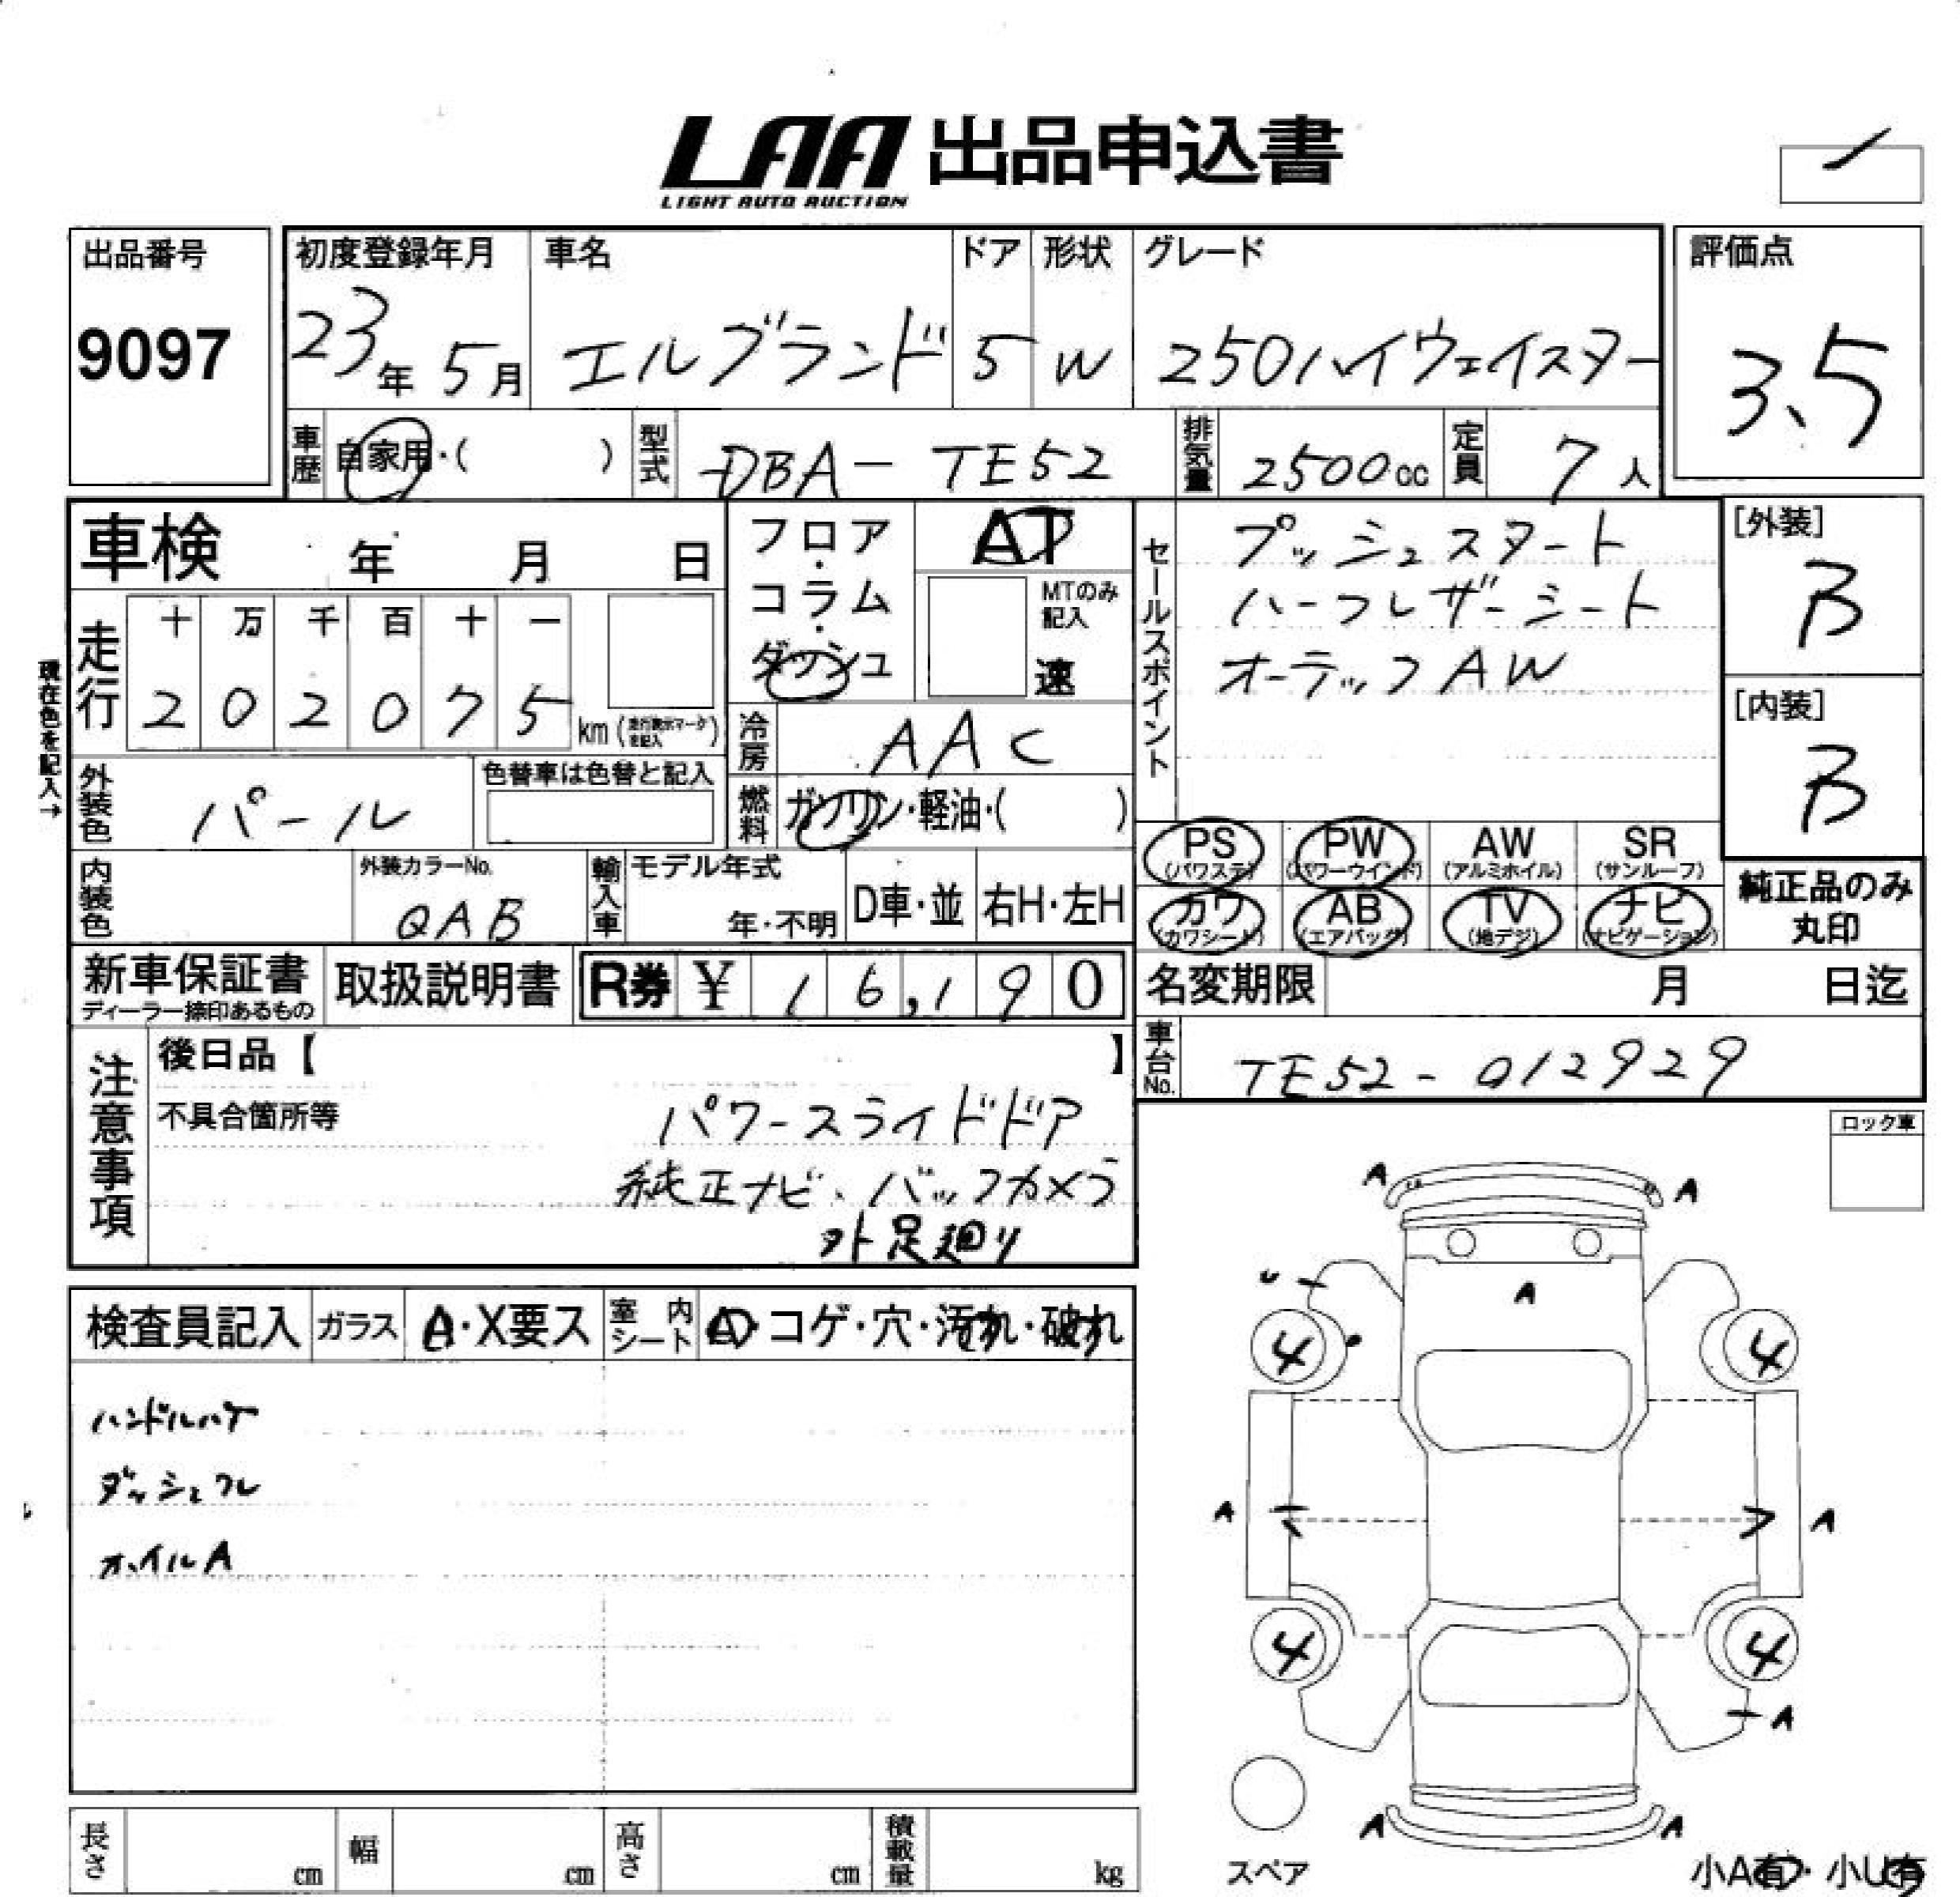 LAA 出品申込書
LIGHT AUTO AUCTION
出品番号
9097
初度登録年月
23年 5月
車名
エルグランド
ドア
5
形状
W
グレード
250ハイウェイスター
評価点
3.5
車歴
自家用・( )
型式
DBA-TE52
排気量
2500cc
定員
7人
車検 年 月 日
フロア・コラム・ダッシュ
AT
MTのみ記入
速
セールスポイント
プッシュスタート
ハーフレザーシート
オーテックAW
[外装]
B
[内装]
B
現在色を記入→
走行
十 万 千 百 十 一
2 0 2 0 7 5 km (走行表示マークを記入)
冷房
AAC
外装色
パール
色替車は色替と記入
燃料
ガソリン・軽油・( )
PS (パワステ)
PW (パワーウインド)
AW (アルミホイル)
SR (サンルーフ)
カワ (カワシート)
AB (エアバッグ)
TV (地デジ)
ナビ (ナビゲーション)
純正品のみ
丸印
内装色
外装カラーNo.
QAB
輸入車
モデル年式
年・不明
D車・並
右H・左H
新車保証書
ディーラー捺印あるもの
取扱説明書
R券 ¥ 1 6,1 9 0
名変期限 月 日迄
車台No.
TE52-012929
注意事項
後日品【 】
不具合箇所等
パワースライドドア
純正ナビ、バックカメラ
外足廻り
ロック車
検査員記入
ガラス
A・X要ス
室内シート
A・コゲ・穴・汚れ・破れ
ハンドルハゲ
ダッシュワレ
ホイルA
A A
U
A
4 4
A A
4 4
A
A A
スペア
小A有・小U有
長さ cm
幅 cm
高さ cm
積載量 kg